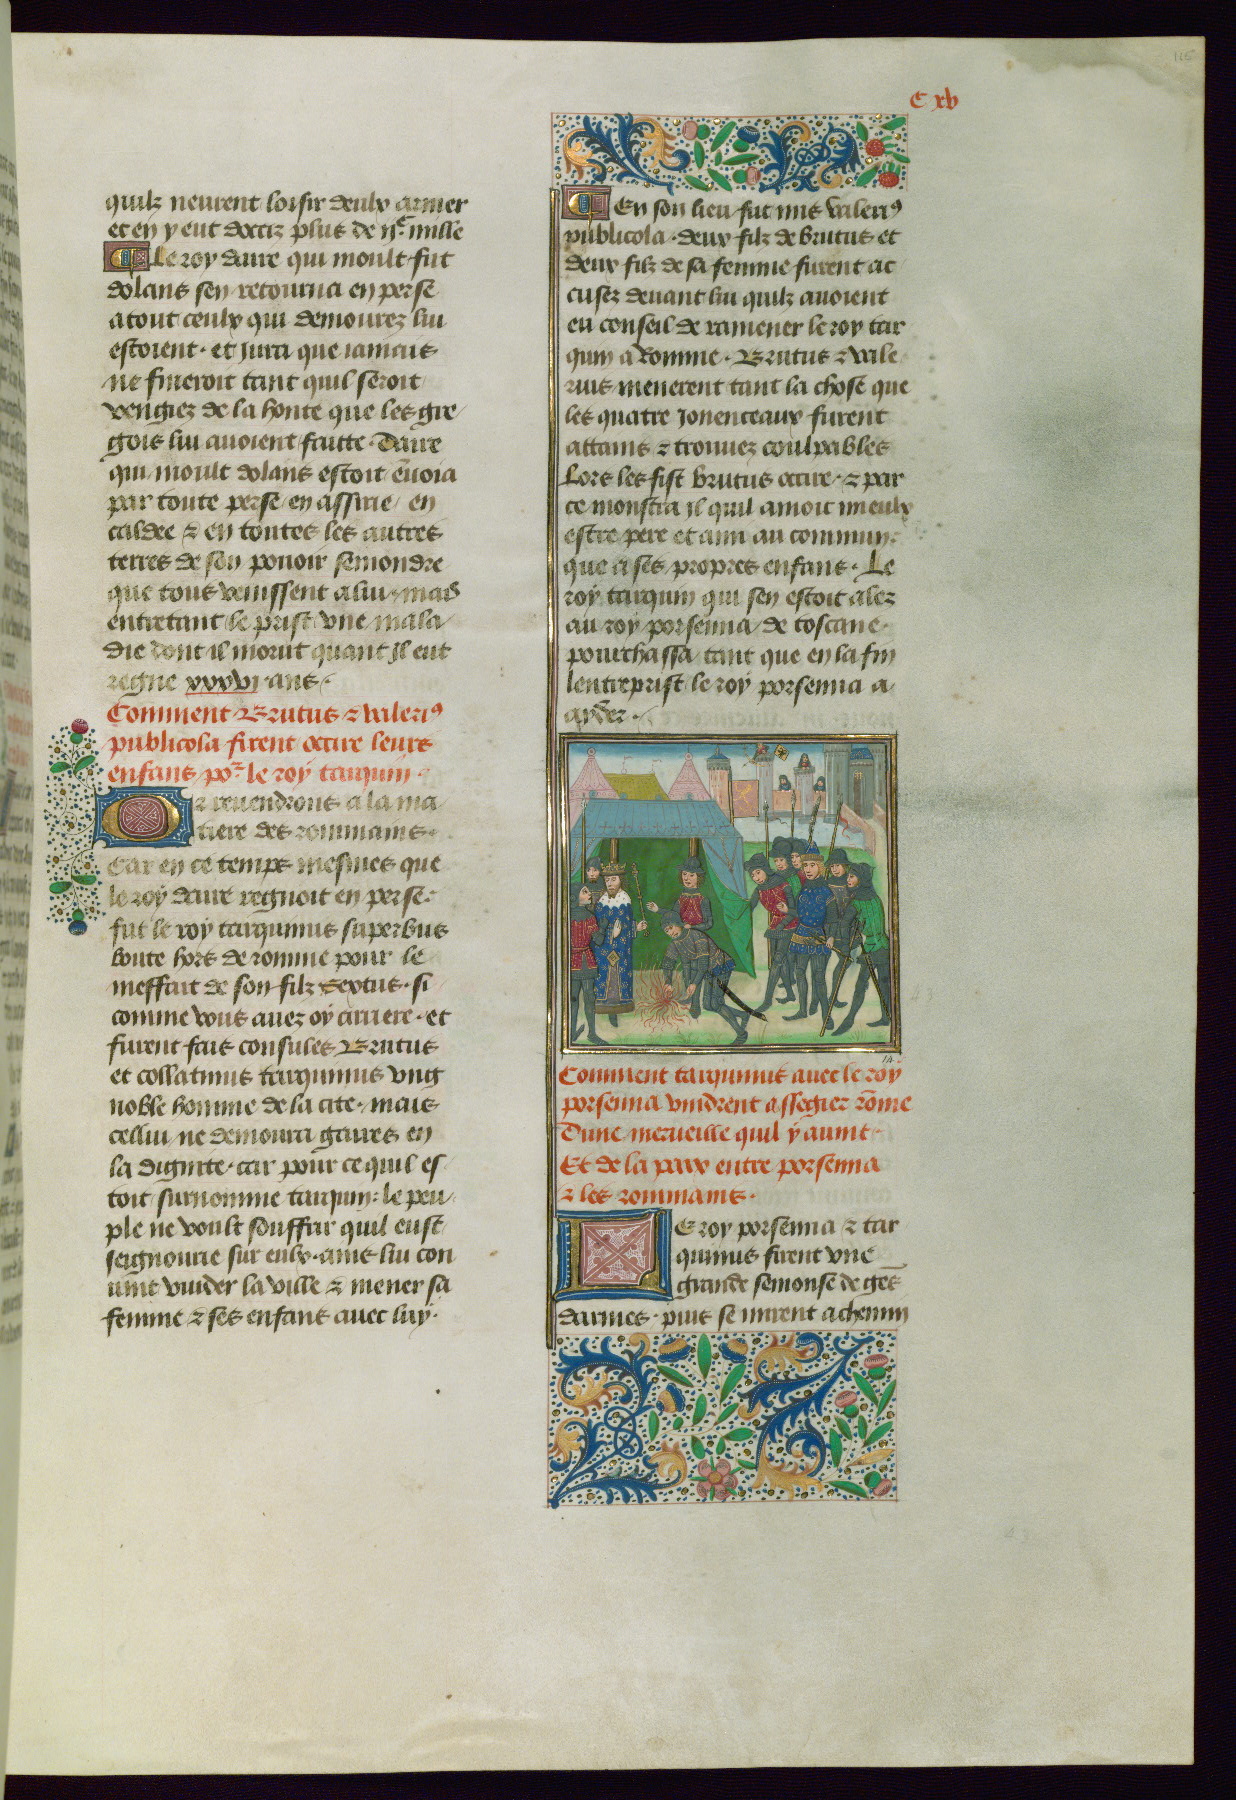 115
C xv
quilz neurent loisir deulx armer
et en y eut docciz plus de ijc mille
Le roy daire qui moult fut
dolans sen retourna en perse
a tout ceulx qui demourez lui
estoient · et jura que iamais
ne fineroit tant quil seroit
vengiez de la honte que les gre
gois lui auoient faitte · Daire
qui moult dolans estoit enuoia
par toute perse en assirie en
caldee & en toutes les autres
terres de son pouoir semondre
que tous venissent a lui · mais
entretant le prist vne mala
die dont il morut quant il eut
regne xxxvi · ans ·
Comment Brutus & valeri9
publicola firent occire leurs
enfans po2 le roy tarquin ·
Or reuendrons a la ma
tiere des rommains ·
Car en ce temps mesmes que
le roy daire regnoit en perse ·
fut le roy tarquinus superbus
boute hors de romme pour le
meffait de son filz Sextus · si
comme vous auez oy arriere · et
furent fais consules Brutus
et collatinus tarquinius vng
noble homme de la cite · mais
cellui ne demoura gaires en
la dignite · car pour ce quil es
toit surnomme tarquin : le peu
ple ne voult souffrir quil eust
seignourie sur eulx · ains lui con
uint vuider la ville & mener sa
femme & ses enfans auec luy ·
En son lieu fut mis valeri9
publicola · deux filz de brutus et
deux filz de sa femme furent ac
cusez deuant lui quilz auoient
eu conseil de ramener le roy tar
quin a Romme · Brutus & vale
rius menerent tant la chose que
les quatre Jonenceaux furent
attains & trouuez coulpables
Lors les fist brutus occire · & par
ce monstra il quil amoit mieulx
estre pere et ami au commun
que a ses propres enfans · Le
roy tarquin qui sen estoit alez
au roy porsenna de toscane ·
pourchassa tant que en la fin
lentreprist le roy porsenna a
ayder ·
Comment tarquinius auec le roy
porsenna vindrent assegier rome
Dune merueille quil y auint ·
Et de la paix entre porsenna
& les rommains ·
Le roy porsenna & tar
quinius firent vne
grande semonse de ges
darmes · puis se mirent a chemin